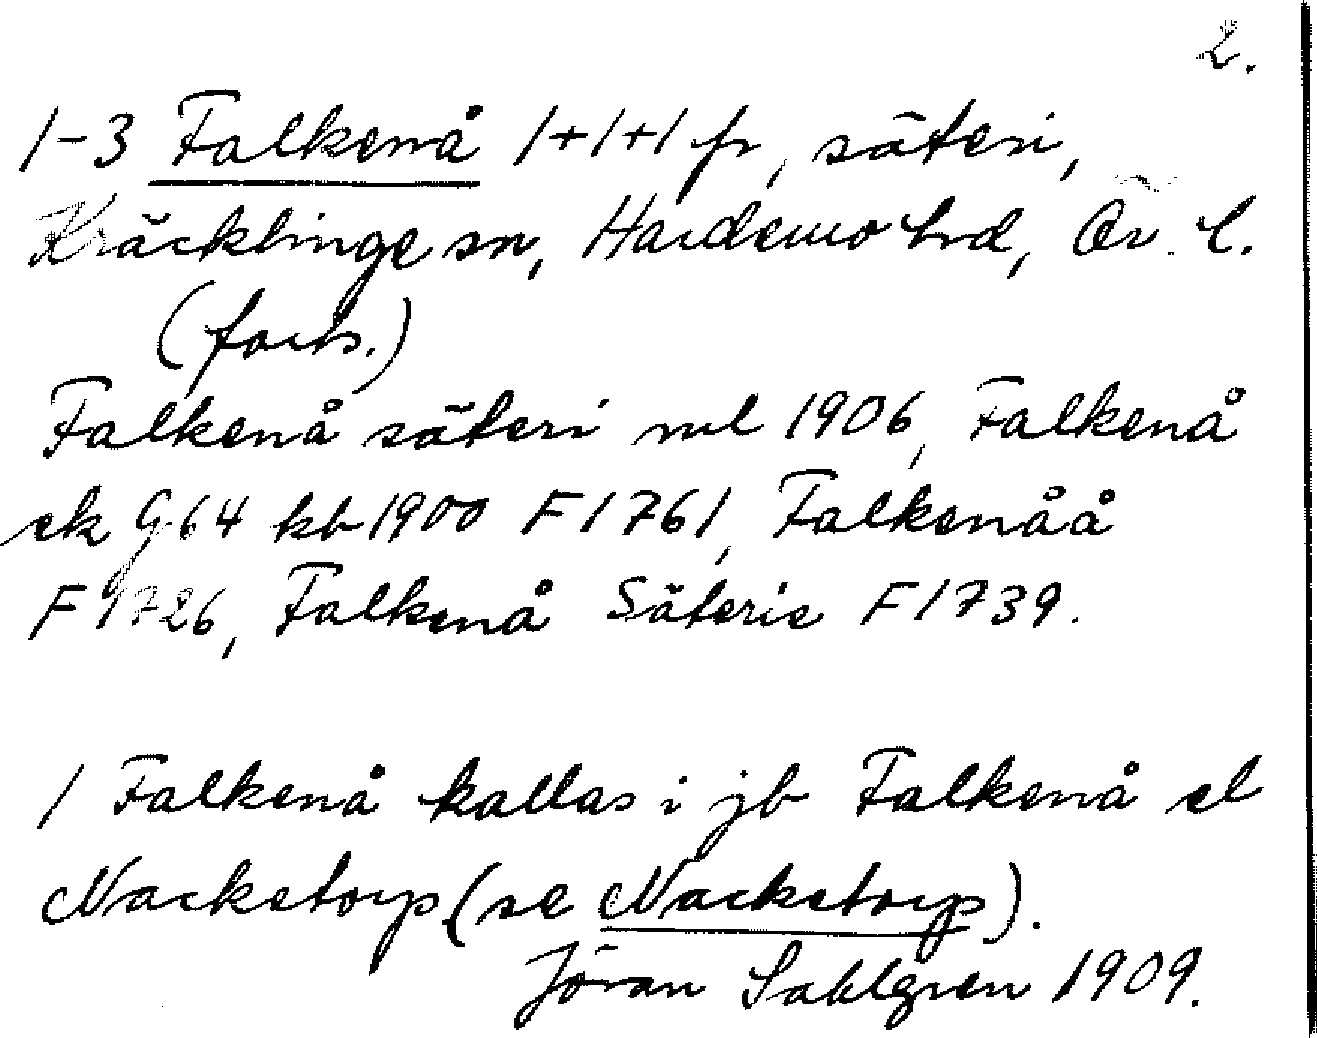 2.
1-3 Falkenå 1+1+1 fr, säteri,
Kräcklinge sn, Hardemo hrd, Ör. l.
(forts.)
Falkenå säteri ml 1906, Falkenå
ek G 64 kb 1900 F 1761, Falkenåå
F 1726, Falkenå Säterie F 1739.
1 Falkenå kallas i jb Falkenå el
Nacketorp (se Nacketorp).
Jöran Sahlgren 1909.